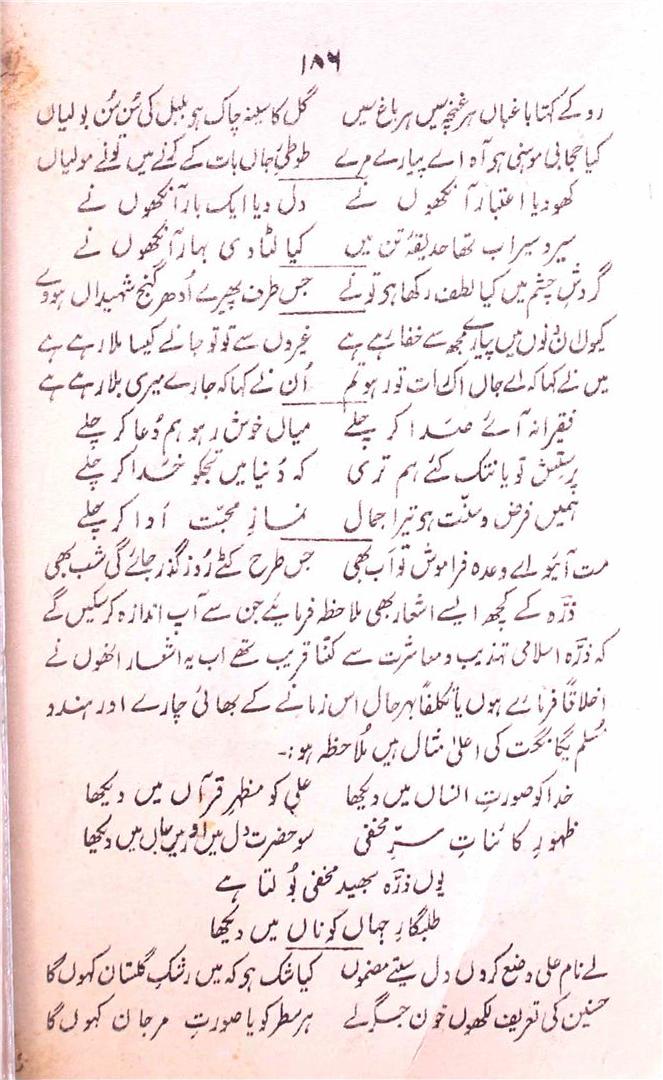 ۱۸۶
رو کے کہتا باغباں ہر غنچہ سیں ہر باغ سیں گل کا سینہ چاک ہو بلبل کی سُن سُن بولیاں
کیا عجابی موہنی ہو آہ اے پیارے مرے طوطیِ جاں بات کے کہنے میں تونے مولیاں
کھو دیا اعتبار آنکھوں نے دل دیا ایک بار آنکھوں نے
سیر و سیراب تھا حدیقۂ تن میں کیا لٹا دی بہار آنکھوں نے
گردشِ چشم میں کیا لطف رکھا ہو تونے جس طرف پھیرے اُدھر گنج شہیداں ہووے
کیوں اِن دنوں میں پیارے مجھ سے خفا رہے ہے غیروں سے تو تو جانے کیسا ملا رہے ہے
میں نے کہا کہ اے جاں اک رات تو رہو تم اُن نے کہا کہ جارے میری بلا رہے ہے
فقیرانہ آئے صدا کر چلے میاں خوش رہو ہم دُعا کر چلے
پرستش تو یا نتک کئے ہم تری کہ دُنیا میں تجکو خُدا کر چلے
ہمیں فرض و سنّت ہو تیرا جمال نمازِ محبّت اَدا کر چلے
مت آئیو اے وعدہ فراموش تو اَب بھی جس طرح کٹے رُوز گذر جائے گی شب بھی
ذرّہ کے کچھ ایسے اشعار بھی ملاحظہ فرمایئے جن سے آپ اندازہ کر سکیں گے
کہ ذرّہ اسلامی تہذیب و معاشرت سے کتنا قریب تھے اب یہ اشعار انھوں نے
اخلاقاً فرمائے ہوں یا تکلفاً بہر حال اس زمانے کے بھائی چارے اور ہندو
مُسلم یگانگت کی اعلیٰ مثال ہیں مُلاحظہ ہو:۔
خدا کو صورتِ انساں میں دیکھا علی کو مظہرِ قرآں میں دیکھا
ظہورِ کائناتِ سرِّ مخفی سو حضرت دل میں اور میں جاں میں دیکھا
یوں ذرّہ بھید مخفی بُولتا ہے
طلبگارِ جہاں کوناں میں دیکھا
لے نام علی وضع کروں دل سیتے مضموں کیا شک ہو کہ میں رشکِ گلستان کہوں گا
حسنین کی تعریف لکھوں خونِ جگر لے ہر سطر کو یا صورتِ مرجان کہوں گا